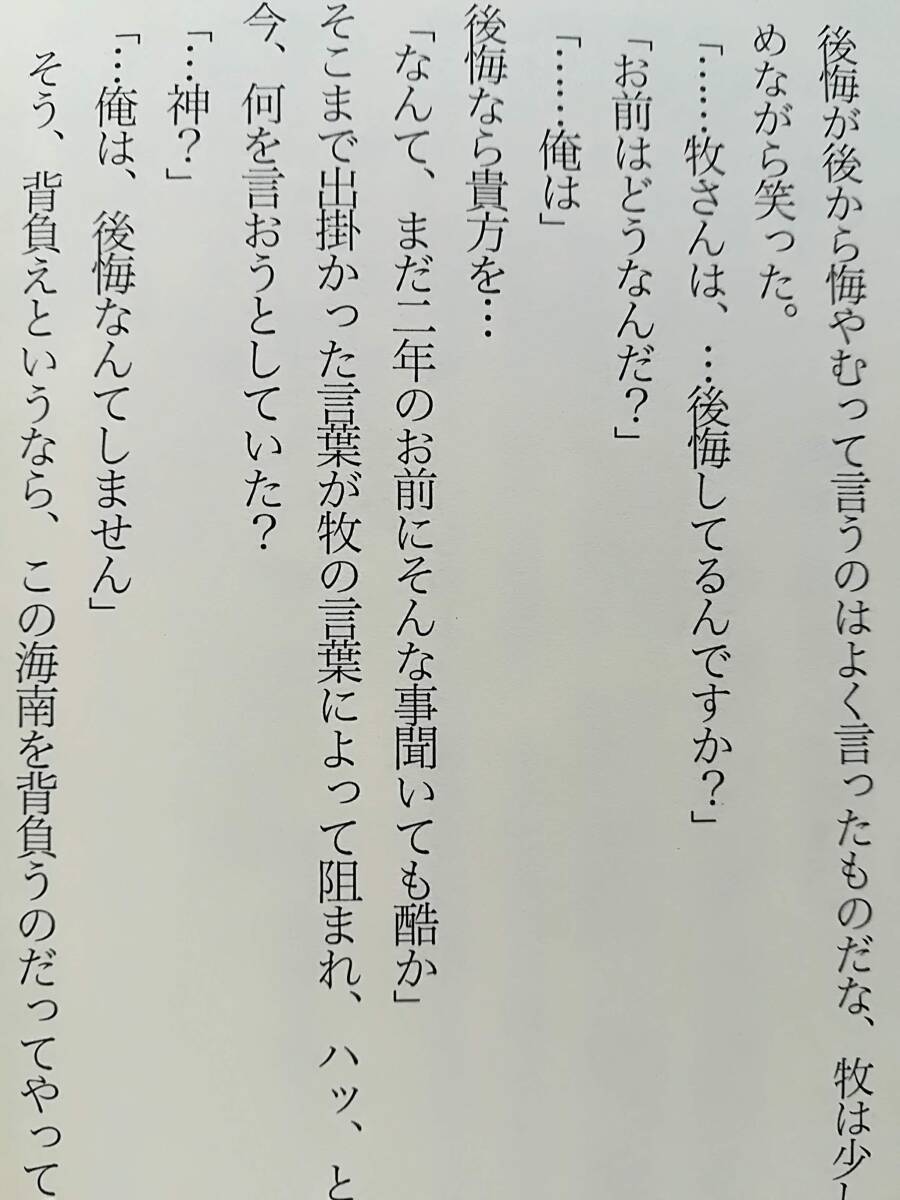 後悔が後から悔やむって言うのはよく言ったものだな、牧は少し
めながら笑った。
「……牧さんは、…後悔してるんですか？」
「お前はどうなんだ？」
「……俺は」
後悔なら貴方を…
「なんて、まだ二年のお前にそんな事聞いても酷か」
そこまで出掛かった言葉が牧の言葉によって阻まれ、ハッ、と
今、何を言おうとしていた？
「…神？」
「…俺は、後悔なんてしません」
そう、背負えというなら、この海南を背負うのだってやって